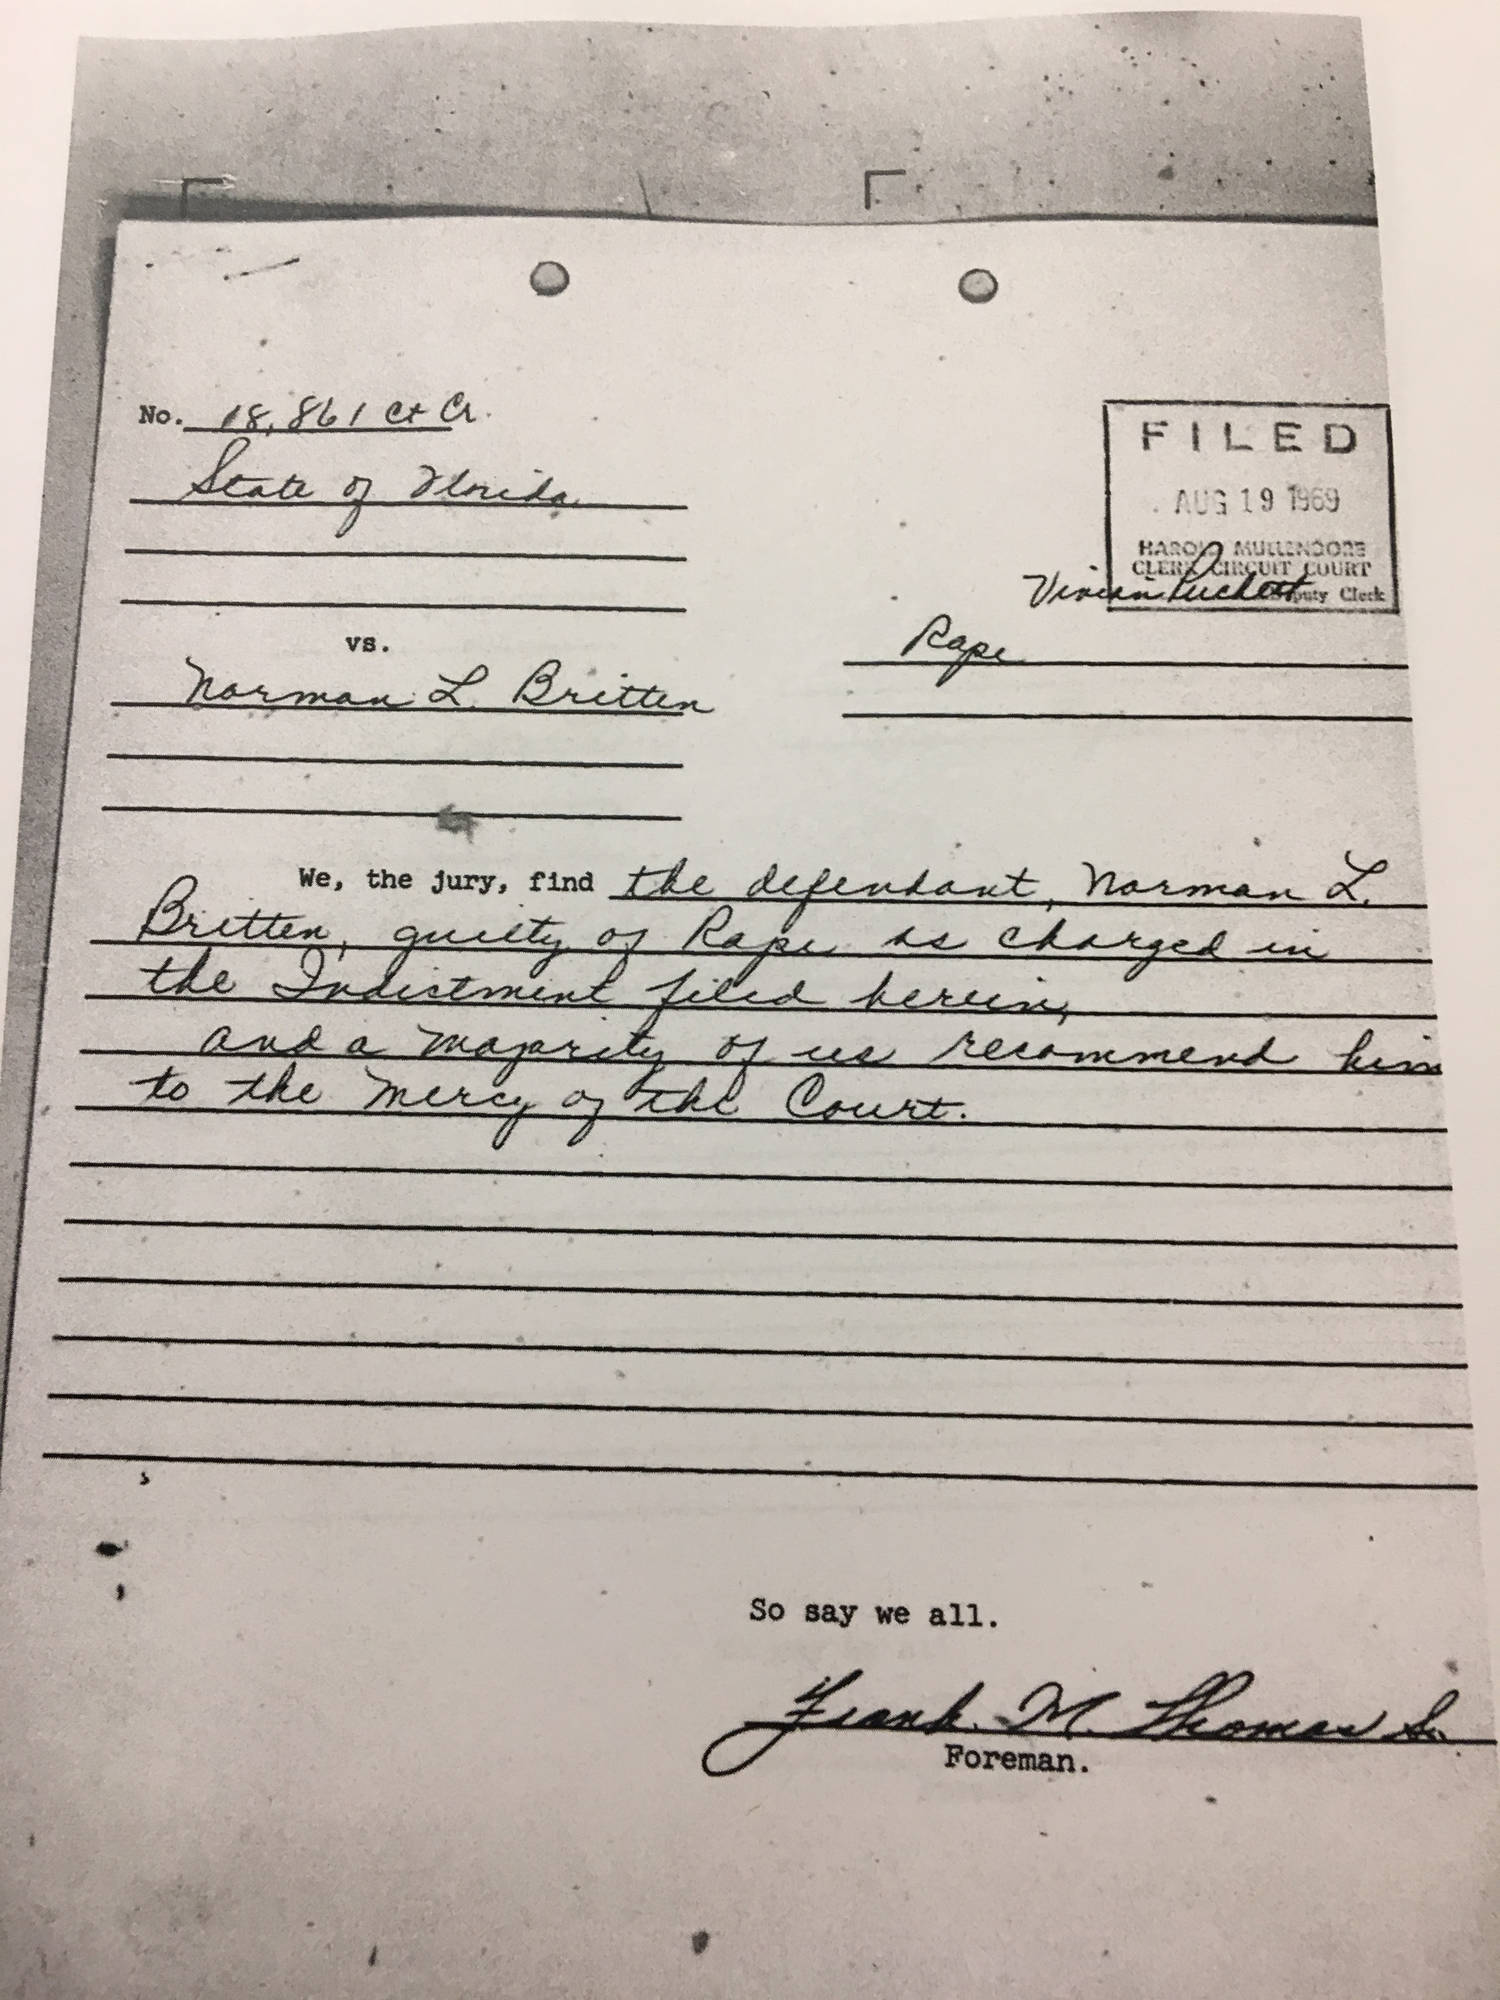 No. 18,861 Ct Cr.
State of Florida
vs.
Norman L. Britten
FILED
AUG 19 1969
HAROLD MULLENDORE
CLERK CIRCUIT COURT
Vivian Puckett Deputy Clerk
Rape
We, the jury, find the defendant, Norman L.
Britten, guilty of Rape as charged in
the Indictment filed herein,
and a majority of us recommend him
to the mercy of the Court.
So say we all.
Frank M. Thomas Sr.
Foreman.